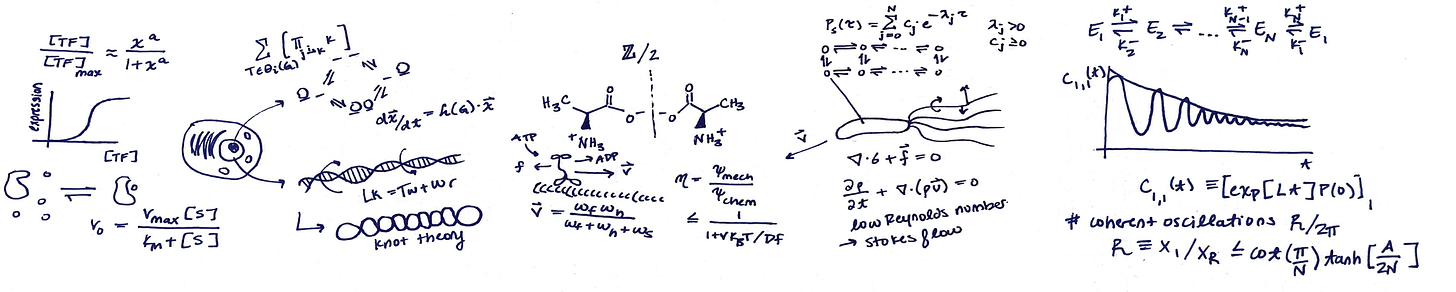 [TF]/[TF]max ≈ x^a/1+x^a
expression
[TF]
v₀ = Vmax[S]/Km+[S]
Σ T∈Θi(G) [Π j→k k]
dx⃗/dt = L(G)·x⃗
LK = Tw + Wr
knot theory
ℤ/2
H₃C O O- ⁺NH₃
-O O CH₃ NH₃⁺
ATP
ADP
f v⃗
v⃗ = ωf ωh/ωf+ωh+ωs
η = Ψmech/Ψchem
≤ 1/1+vKBT/Df
Ps(τ) = Σ j=0 N cj·e^-λjτ λj>0 cj≥0
0 ⇌ 0 ⇌ ... ⇌ 0
0 ⇌ 0 ⇌ ... ⇌ 0
v⃗
∇·σ + f⃗ = 0
∂ρ/∂t + ∇·(ρv⃗) = 0
low Reynolds number
→ stokes flow
E₁ ⇌ E₂ ⇌ ... ⇌ EN ⇌ E₁
k₁⁺ k₂⁻ k⁺N-1 k⁻N k⁺N k₁⁻
C₁,₁(t)
t
C₁,₁(t) ≡ [exp[Lt]P(0)]₁
# coherent oscillations R/2π
R ≡ X₁/XR ≤ cot(π/N) tanh[A/2N]